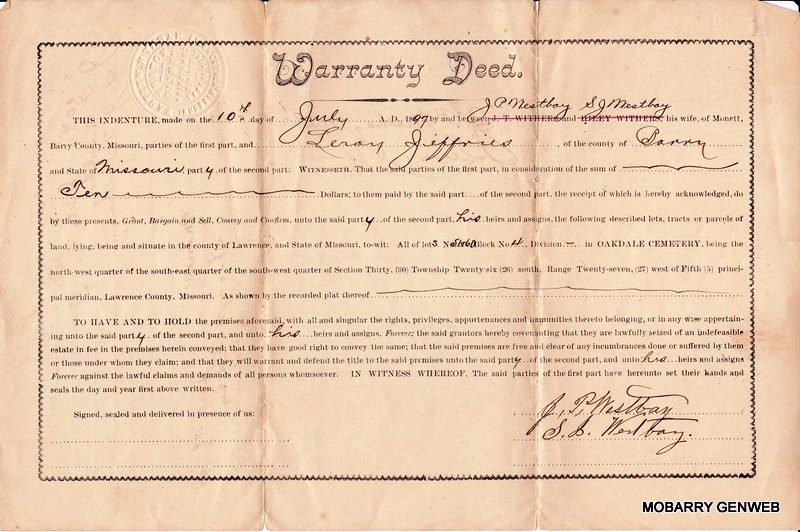 Warranty Deed.
J. P. Westbay S. J. Westbay
THIS INDENTURE, made on the 10th day of July A. D., 1897 by and between J. T. WITHERS and RILEY WITHERS, his wife, of Monett,
Barry County, Missouri, parties of the first part, and Leroy Jeffries of the county of Barry
and State of Missouri, party of the second part: WITNESSETH, That the said parties of the first part, in consideration of the sum of
Ten Dollars; to them paid by the said part of the second part, the receipt of which is hereby acknowledged, do
by these presents, Grant, Bargain and Sell, Convey and Confirm, unto the said party of the second part, his heirs and assigns, the following described lots, tracts or parcels of
land, lying, being and situate in the county of Lawrence, and State of Missouri, to-wit: All of lots No. Block No. 4, Division in OAKDALE CEMETERY, being the
north-west quarter of the south-east quarter of the south-west quarter of Section Thirty, (30) Township Twenty-six (26) south, Range Twenty-seven, (27) west of Fifth (5) princi-
pal meridian, Lawrence County, Missouri. As shown by the recorded plat thereof
TO HAVE AND TO HOLD the premises aforesaid, with all and singular the rights, privileges, appurtenances and immunities thereto belonging, or in any wise appertain-
ing unto the said party of the second part, and unto his heirs and assigns, Forever; the said grantors hereby covenanting that they are lawfully seized of an indefeasible
estate in fee in the premises herein conveyed; that they have good right to convey the same; that the said premises are free and clear of any incumbrances done or suffered by them
or those under whom they claim; and that they will warrant and defend the title to the said premises unto the said party of the second part, and unto his heirs and assigns
Forever against the lawful claims and demands of all persons whomsoever. IN WITNESS WHEREOF. The said parties of the first part have hereunto set their hands and
seals the day and year first above written.
Signed, sealed and delivered in presence of us:
J. P. Westbay
S. J. Westbay.
MOBARRY GENWEB